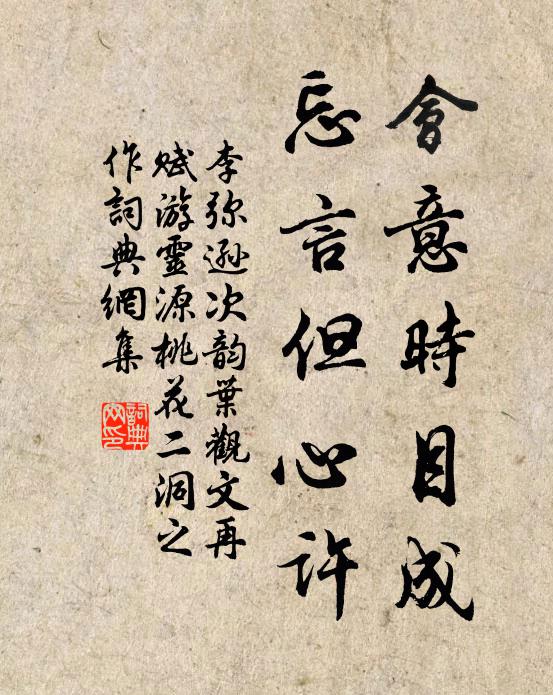 會意時目成
忘言但心許
李弥遜次韵葉觀文再
赋游靈源桃花二洞之
作詞典網集
詞典
网印